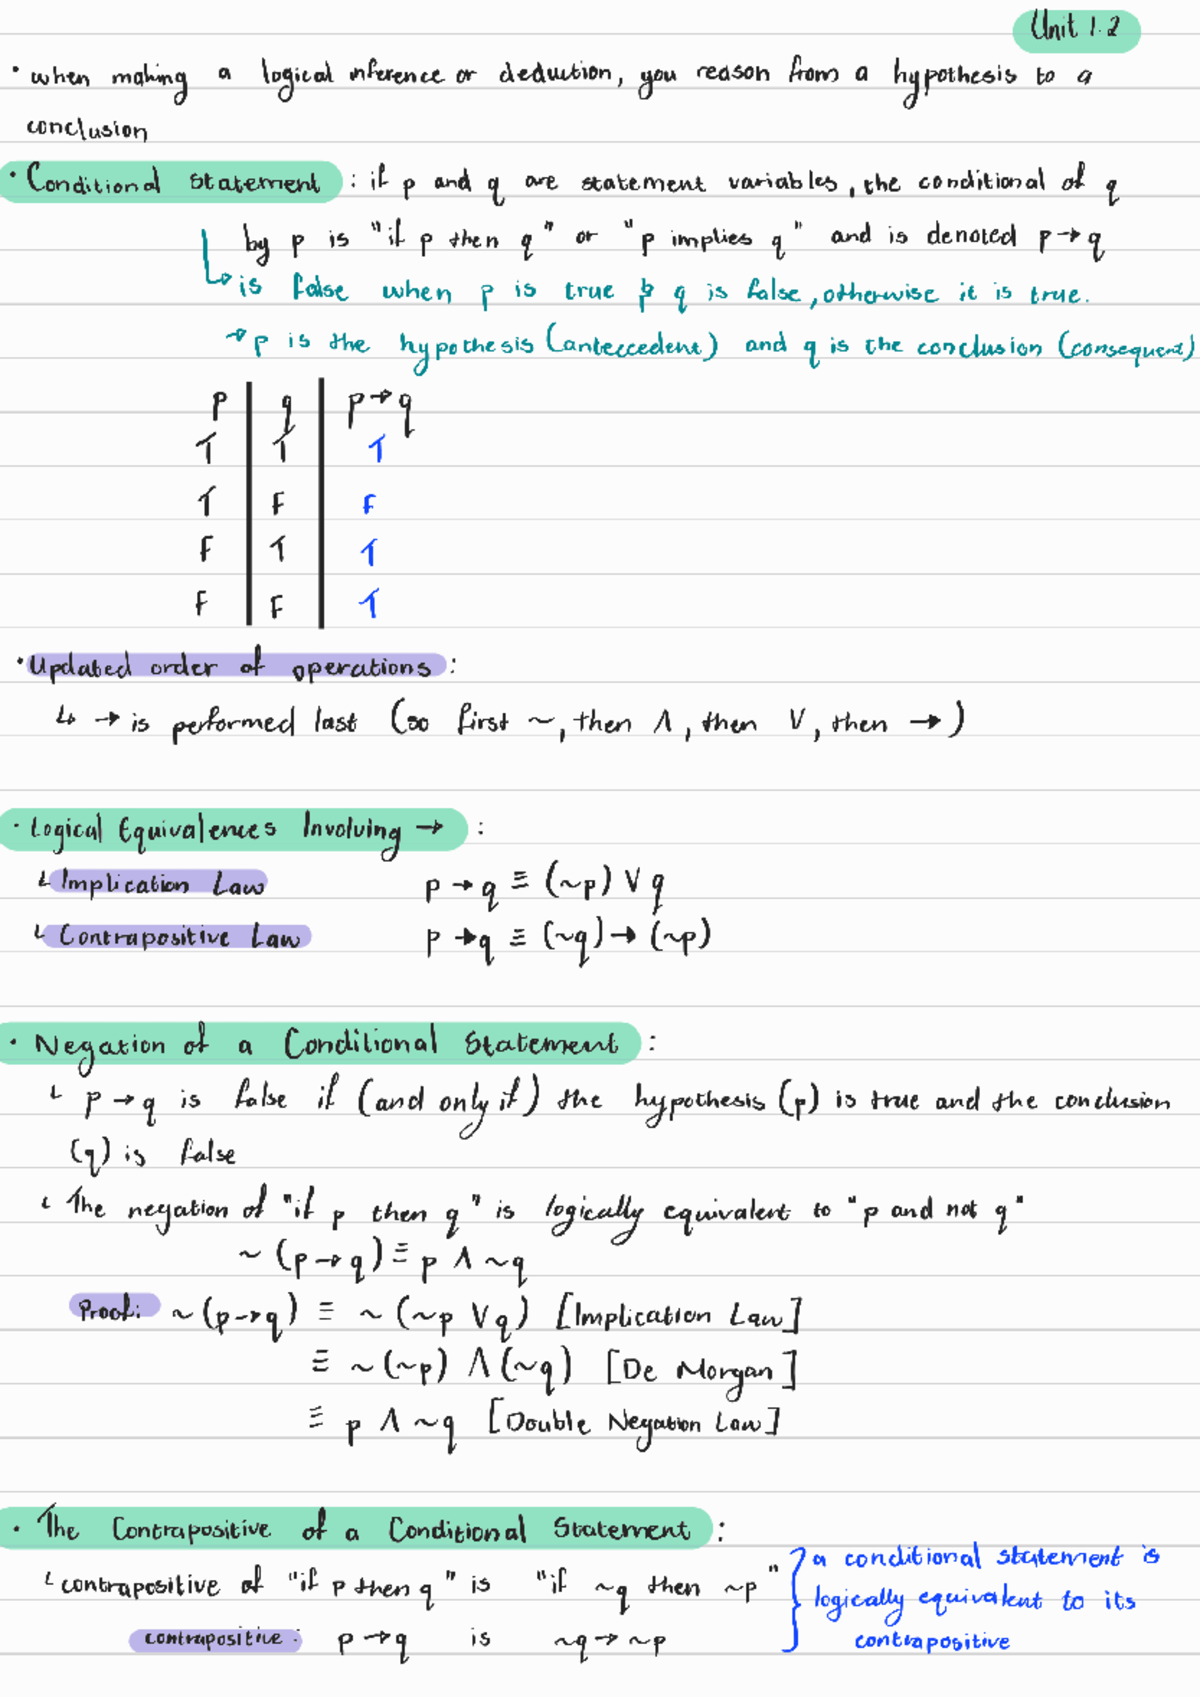 Unit 1.2
· when making a logical inference or deduction, you reason from a hypothesis to a
conclusion
· Conditional Statement : if p and q are statement variables, the conditional of q
by p is "if p then q" or "p implies q" and is denoted p→q
↳ is false when p is true & q is false, otherwise it is true.
→ p is the hypothesis (anteccedent) and q is the conclusion (consequent)
p q p→q
T T T
T F F
F T T
F F T
· Updated order of operations :
↳ → is performed last (so first ~, then ∧, then ∨, then →)
· Logical Equivalences Involving → :
↳ Implication Law p→q ≡ (~p) ∨ q
↳ Contrapositive Law p→q ≡ (~q)→(~p)
· Negation of a Conditional Statement :
↳ p→q is false if (and only if) the hypothesis (p) is true and the conclusion
(q) is false
↳ The negation of "if p then q" is logically equivalent to "p and not q"
~(p→q) ≡ p ∧ ~q
Proof: ~(p→q) ≡ ~(~p ∨ q) [Implication Law]
≡ ~(~p) ∧ (~q) [De Morgan]
≡ p ∧ ~q [Double Negation Law]
· The Contrapositive of a Conditional Statement :
↳ contrapositive of "if p then q" is "if ~q then ~p"
contrapositive: p→q is ~q→~p
a conditional statement is
logically equivalent to its
contrapositive